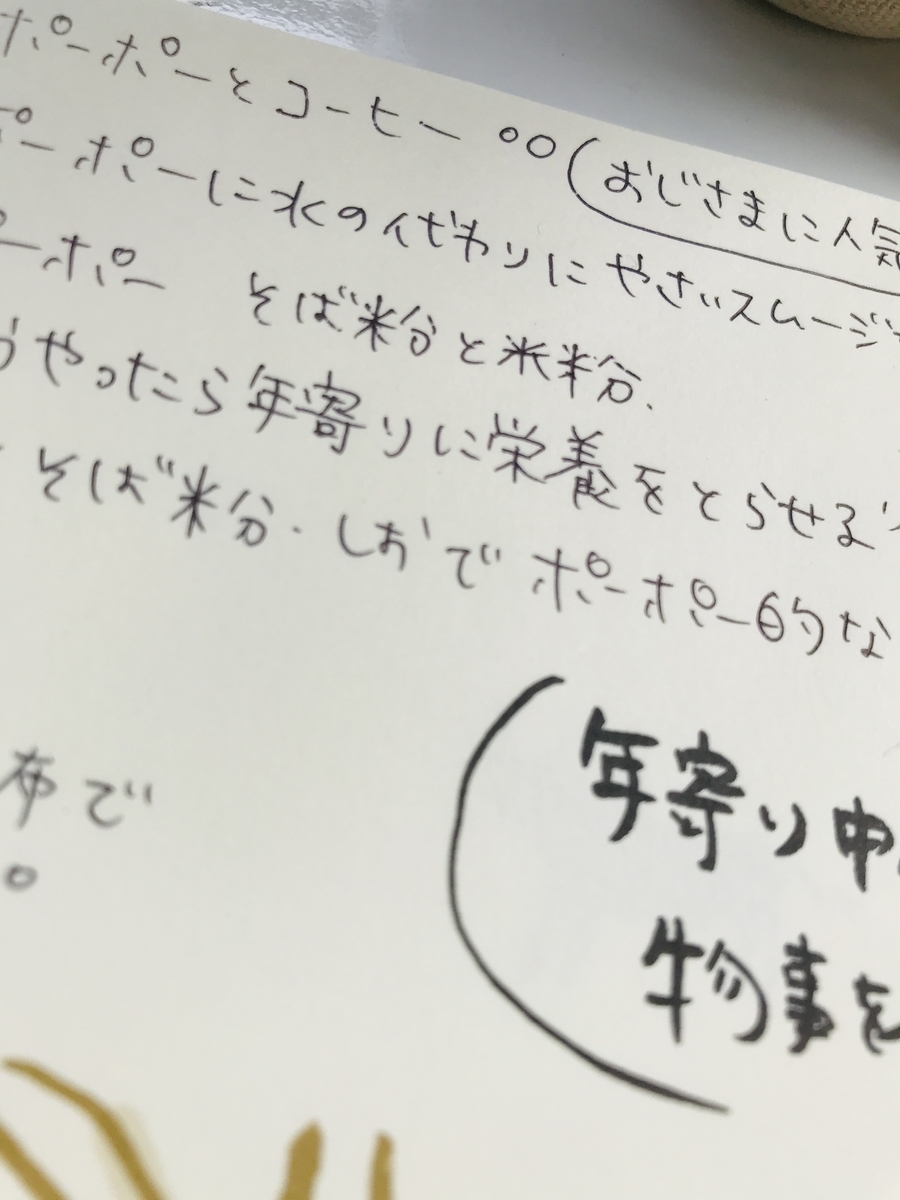 ポーポーとコーヒー °○(おじさまに人気
ポーポーに水の代わりにやさいスムージ
ーポー そば米分と米米分.
うやったら年寄りに栄養をとらせる
そば米分.しおでポーポー的な
布で
(年寄り中
物事を